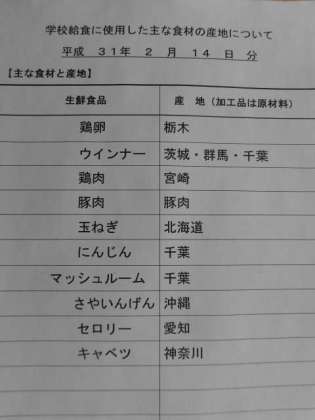 学校給食に使用した主な食材の産地について
平成 31年 2 月 14 日 分
【主な食材と産地】
生鮮食品 産 地(加工品は原材料)
鶏卵 栃木
ウインナー 茨城・群馬・千葉
鶏肉 宮崎
豚肉 豚肉
玉ねぎ 北海道
にんじん 千葉
マッシュルーム 千葉
さやいんげん 沖縄
セロリー 愛知
キャベツ 神奈川